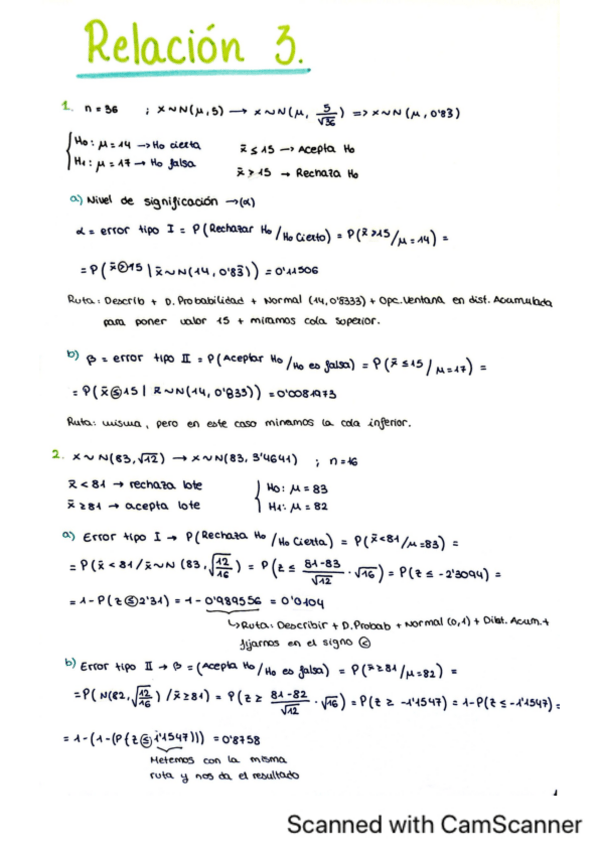 Relación 3.
1. n = 36 ; x ~ N(μ, 5) → x ~ N(μ, 5/√36) => x ~ N(μ, 0'83)
{ H0 : μ = 14 → H0 cierta
H1 : μ = 17 → H0 falsa
x̄ ≤ 15 → Acepta H0
x̄ > 15 → Rechaza H0
a) Nivel de significación → (α)
α = error tipo I = P(Rechazar H0 / H0 cierto) = P(x̄ > 15 / μ = 14) =
= P(x̄ > 15 | x̄ ~ N(14, 0'83)) = 0'11506
Ruta: Describ + D. Probabilidad + Normal (14, 0'8333) + Opc. Ventana en dist. Acumulada
para poner valor 15 + miramos cola superior.
b) β = error tipo II = P(Aceptar H0 / H0 es falsa) = P(x̄ ≤ 15 / μ = 17) =
= P(x̄ ≤ 15 | x̄ ~ N(14, 0'833)) = 0'0081973
Ruta: misma, pero en este caso miramos la cola inferior.
2. x ~ N(83, √12) → x ~ N(83, 3'4641) ; n = 16
x̄ < 81 → rechaza lote
x̄ ≥ 81 → acepta lote
{ H0 : μ = 83
H1 : μ = 82
a) Error tipo I → P(Rechaza H0 / H0 cierta) = P(x̄ < 81 / μ = 83) =
= P(x̄ < 81 / x̄ ~ N(83, √12/16) = P(z ≤ 81-83/√12 · √16) = P(z ≤ -2'3094) =
= 1 - P(z ≤ 2'31) = 1 - 0'989556 = 0'0104
↳ Ruta: Describir + D. Probab + Normal (0,1) + Dist. Acum. +
fijarnos en el signo <
b) Error tipo II → β = (Acepta H0 / H0 es falsa) = P(x̄ ≥ 81 / μ = 82) =
= P(N(82, √12/16) / x̄ ≥ 81) = P(z ≥ 81-82/√12 · √16) = P(z ≥ -1'1547) = 1 - P(z ≤ -1'1547) =
= 1 - (1 - (P(z ≤ 1'1547))) = 0'8758
Metemos con la misma
ruta y nos da el resultado
1
Scanned with CamScanner